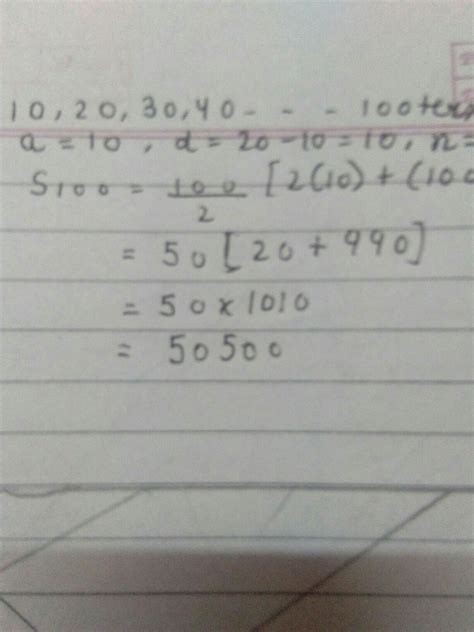 10, 20, 30, 40 - - - 100 ter
a = 10, d = 20 - 10 = 10, n =
S100 = 100/2 [2(10) + (100
= 50 [20 + 990]
= 50 x 1010
= 50500